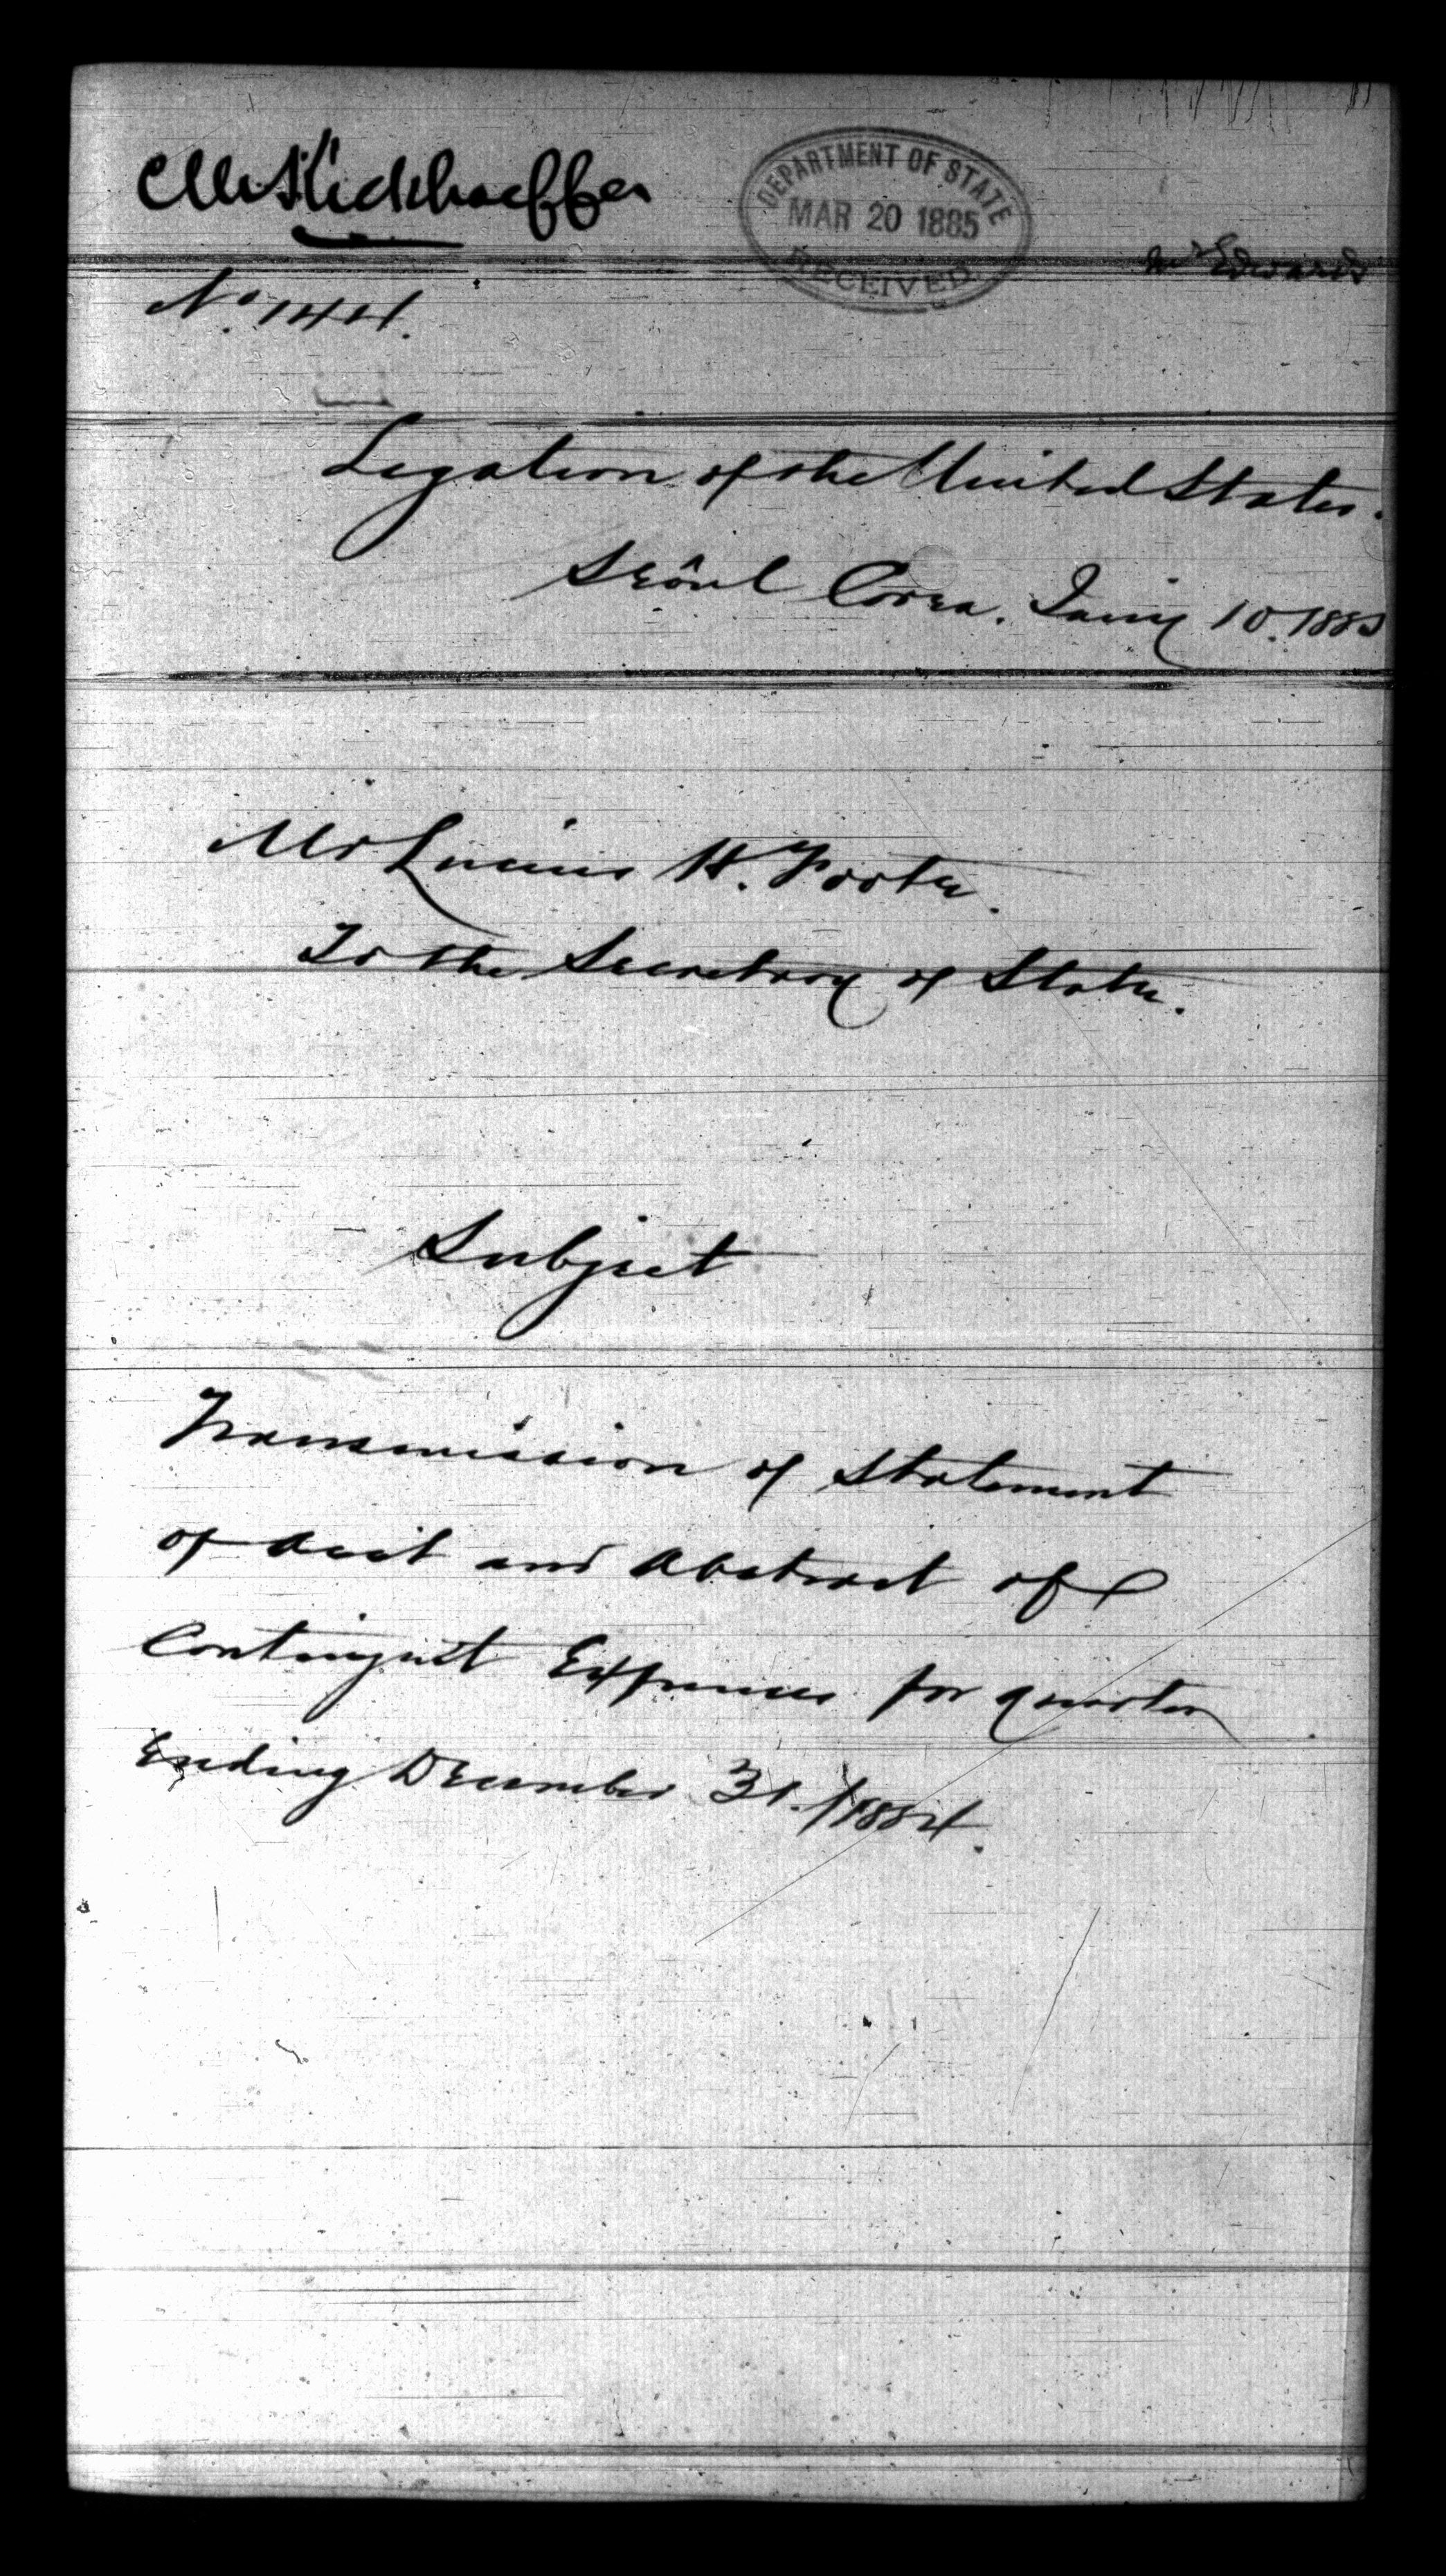 Mr Kieckhoefer
DEPARTMENT OF STATE
MAR 20 1885
RECEIVED
Mr Edwards
No. 144.
Legation of the United States.
Seôul Corea. Jany 10. 1885
Mr Lucius H. Foote.
To the Secretary of State.
Subject
Transmission of Statement
of acct and abstract of
Contingent Expenses for quarter
Ending December 31. 1884.